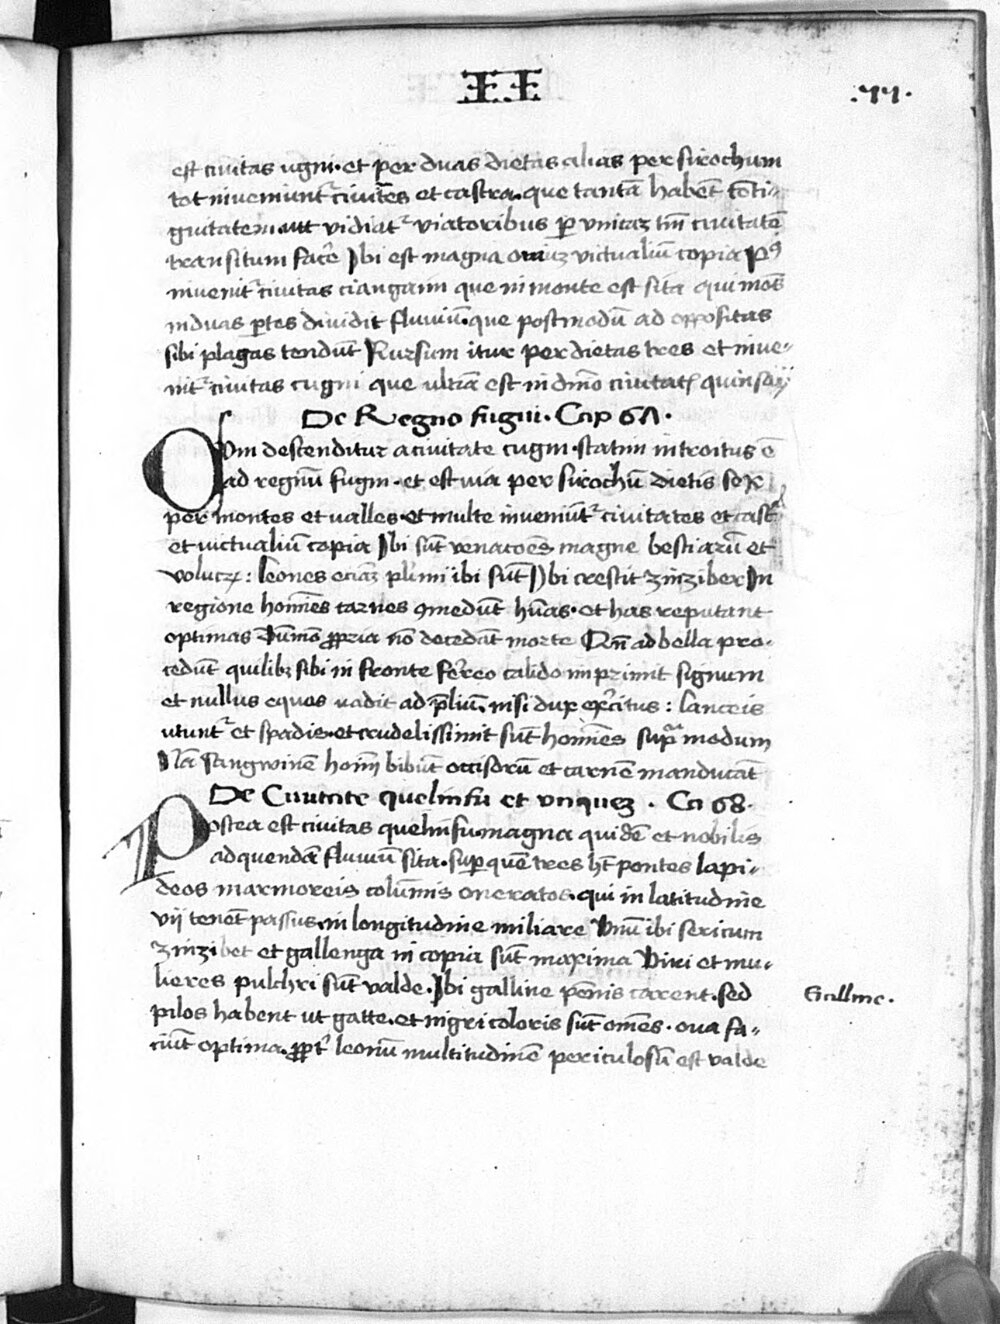 II
.77.
est ciuitas ugui. et per duas dietas alias per sirochum
tot inueniunt᷑ ciuitẽs et castra. que tantã habẽt cõti-
guitatem aut vidiat᷑ viatoribus ꝑ vnicaz tm̃ ciuitatẽ
transitum facẽ Ibi est magna omiuz victualiũ copia Pꝰ
inuenit᷑ ciuitas ciangam que in monte est sita qui mõs
in duas ꝑtes diuidit fluuiũ. que postmodũ ad oppositas
sibi plagas tendũt Rursum itur per dietas tres et inue-
nit᷑ ciuitas cugui que ultĩa est in dm̃o ciuitatꝭ quinsay
De Regno fugui. Cap 67.
Qvm descenditur a ciuitate cugui statim introitus ẽ
ad regnũ fugui. et est via per sirochũ dietis sex
per montes et valles. et multe inueniũt᷑ ciuitates et castͣ
et victualiũ copia Ibi sũt venatoẽs magne bestiarũ et
volucrꝝ: leones eciaz plimi ibi sũt Ibi crescit zinziber In
regione hom̃es carnes ꝯmedũt hũas. et has reputant
optimas Dũmõ ꝓpria nõ decedãt morte Qñ ad bella pro-
cedũt quilibꝫ sibi in fronte fẽreo calido imprimit signum
et nullus equos vadit ad p̃liũ. nisi dux exẽcitus: lanceis
utunt᷑ et spadis. et crudelissimi sũt hom̃es supͣ modum
Nã sangwinẽ homĩ bibũt occisorũ et carnẽ manducãt
De Ciuitate quelinfu et vnquez. Ca 68.
Postea est ciuitas quelinfu magna quidẽ et nobilis
ad quendã fluuiũ sita. sup quẽ tres hñt pontes lapi-
deos marmoreis colum̃is oneratos. qui in latitudine
vij tenẽt passus. in longitudine miliare Vnũ ibi sericum
zinzibet et gallenga in copia sũt maxima Viri et mu-
lieres pulchri sũt valde. Ibi galline pẽnis carent. sed
pilos habent ut gatte. et nigri coloris sũt om̃es. oua fa-
ciũt optima. ꝓpt᷑ leonũ multitudinẽ periculosũ est valde
Galline.